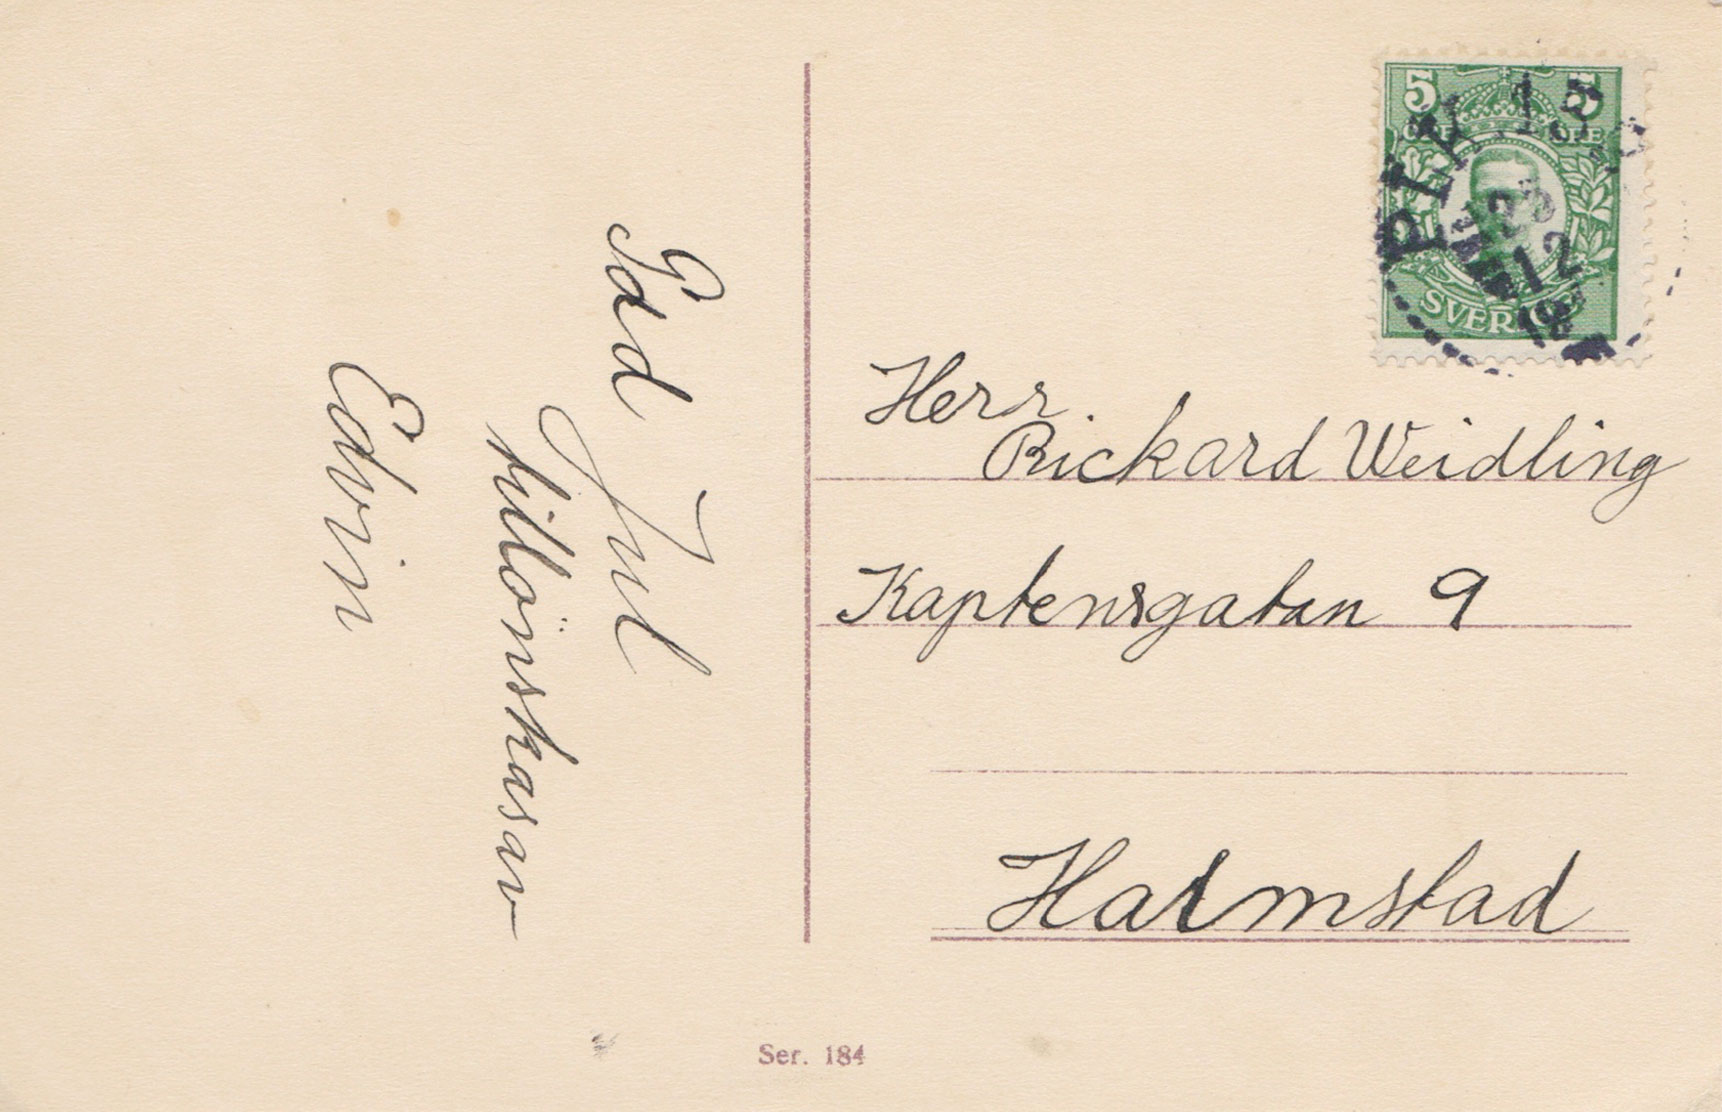 God Jul
tillönskasav
Edvin
5 5
ÖRE ÖRE
SVERIGE
PLK 1
23
12
Herr
Rickard Weidling
Kaptensgatan 9
Halmstad
Ser. 184